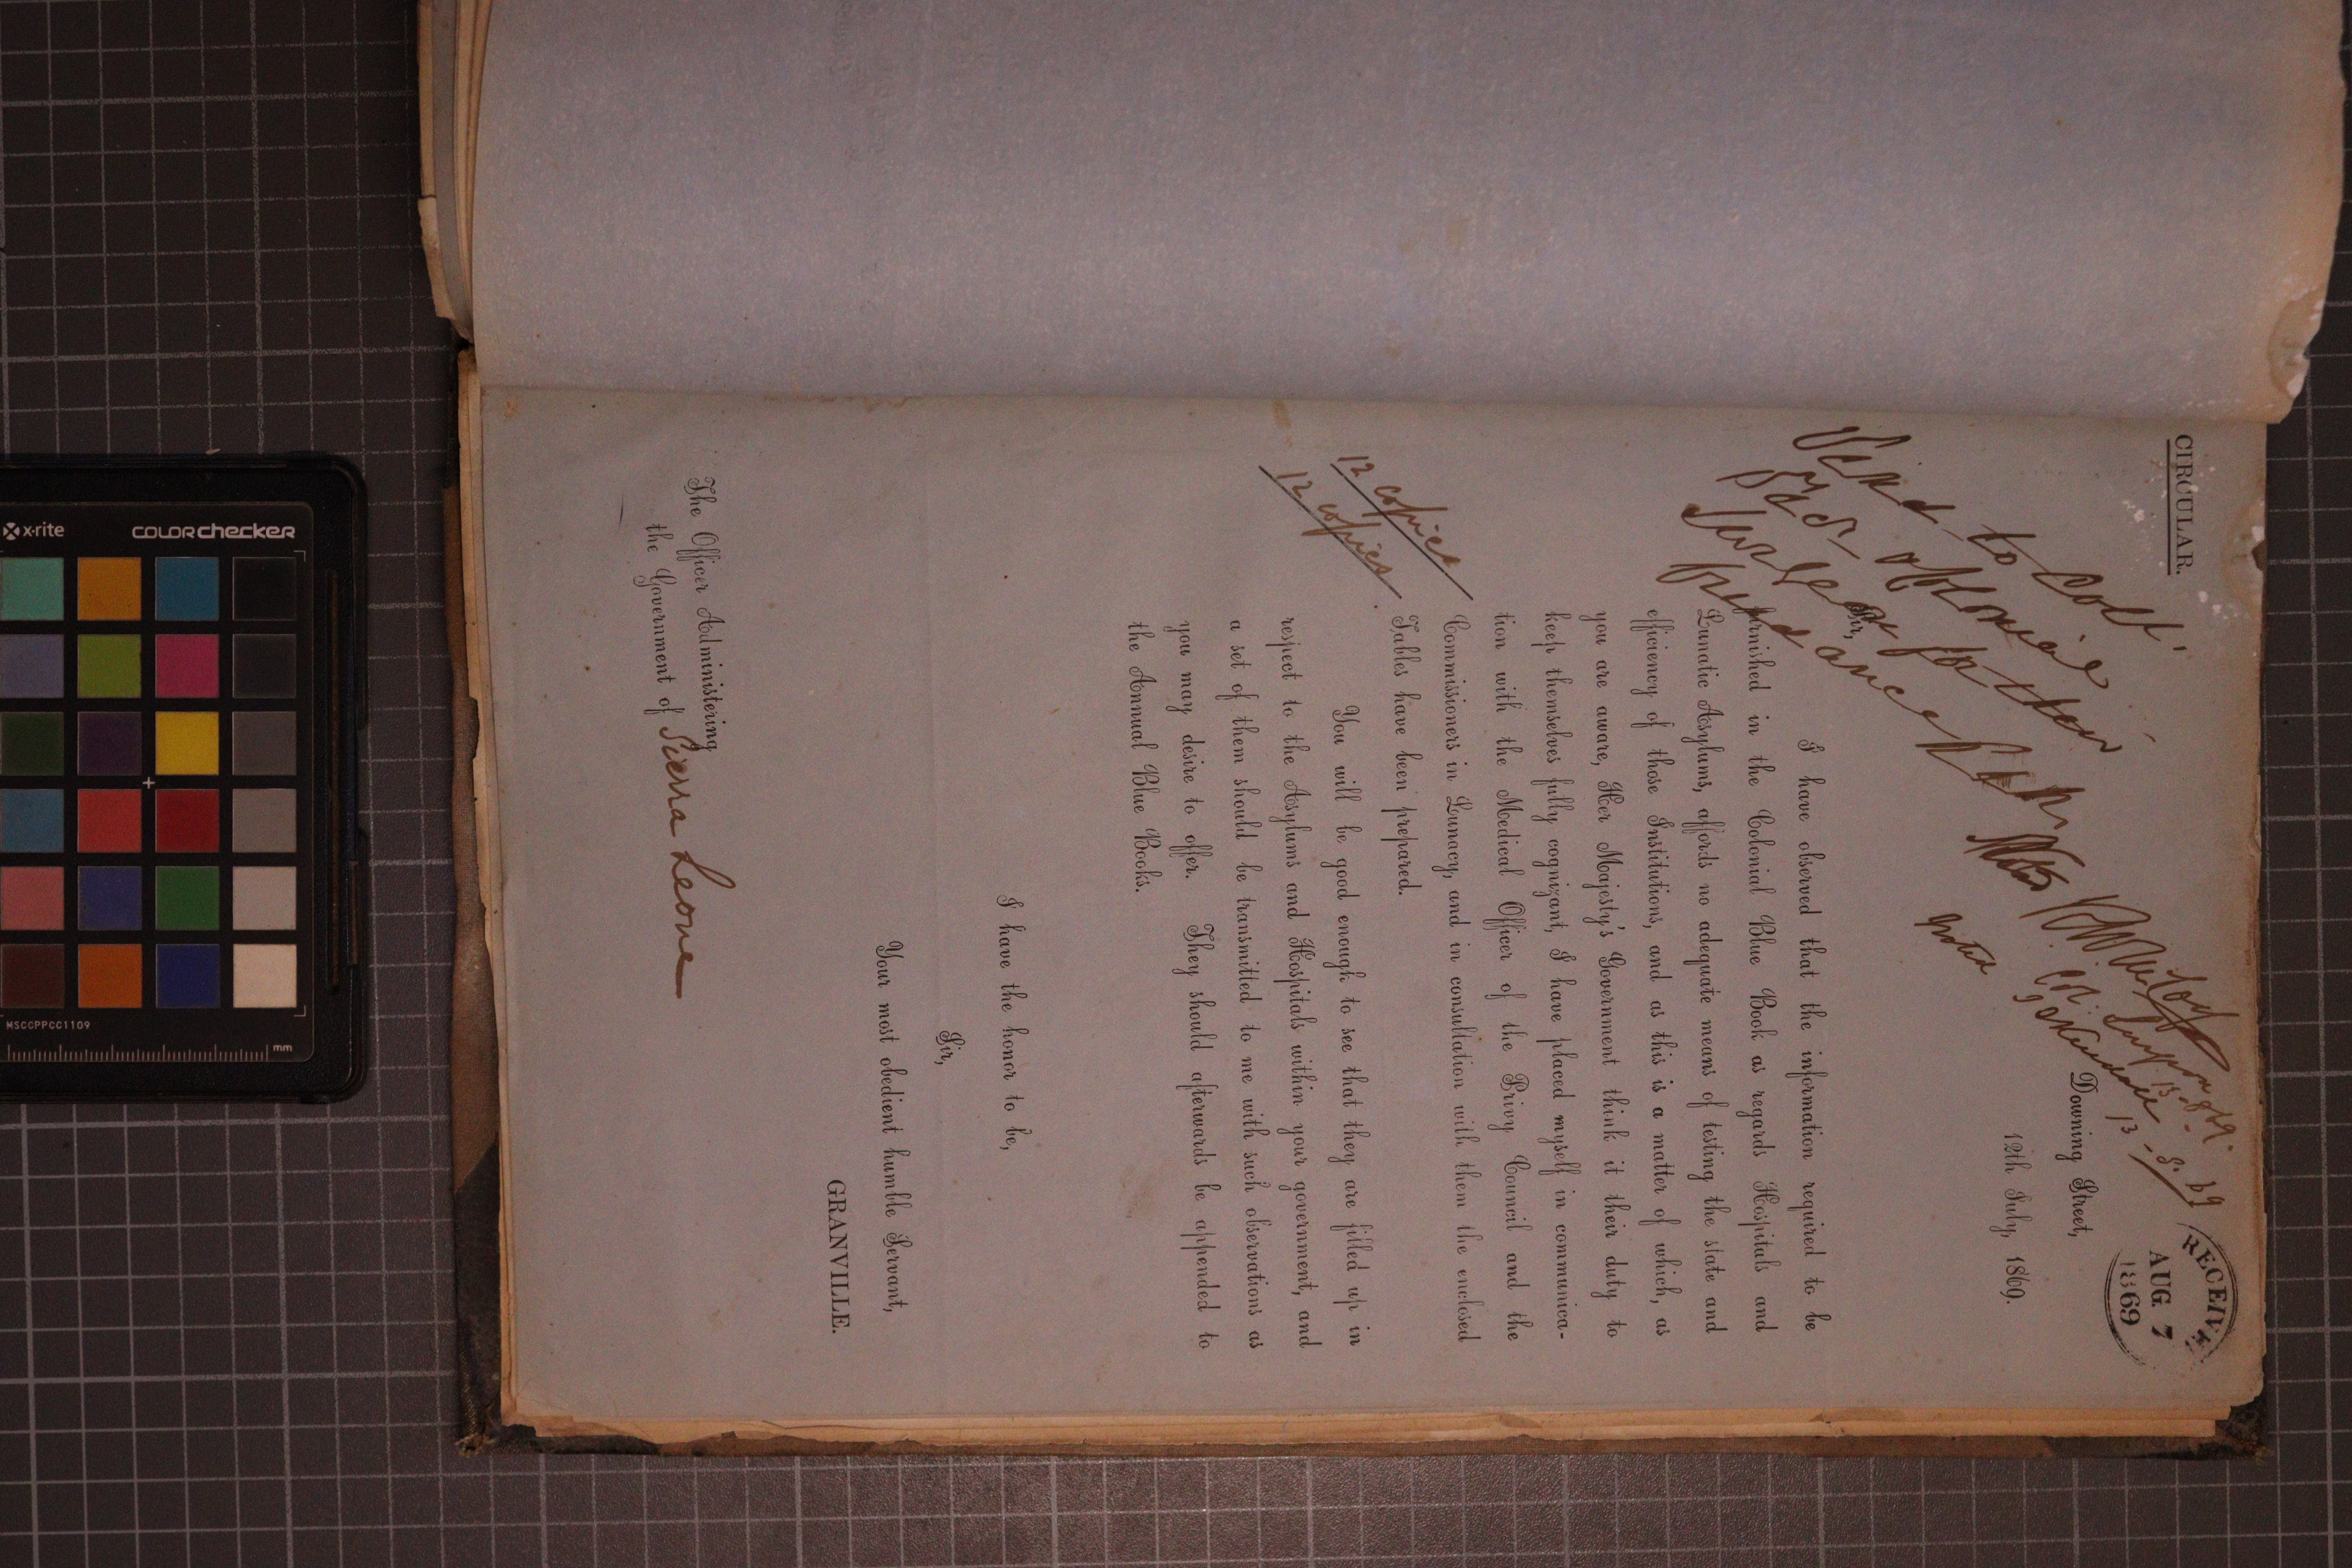 CIRCULAR.
RECEIVE
AUG 7
1869
Downing Street,
12th July, 1869.
Send to Col
Surgeon for their
13-8-69
Noted
Sir,
I have observed that the information required to be
furnished in the Colonial Blue Book as regards Hospitals and
Lunatic Asylums, affords no adequate means of testing the state and
efficiency of those Institutions, and as this is a matter of which, as
you are aware, Her Majesty's Government think it their duty to
keep themselves fully cognizant, I have placed myself in communica-
tion with the Medical Officer of the Privy Council and the
Commissioners in Lunacy, and in consultation with them the enclosed
Tables have been prepared.
12 copies
12 copies
You will be good enough to see that they are filled up in
respect to the Asylums and Hospitals within your government, and
a set of them should be transmitted to me with such observations as
you may desire to offer. They should afterwards be appended to
the Annual Blue Books.
I have the honor to be,
Sir,
Your most obedient humble Servant,
GRANVILLE.
The Officer Administering
the Government of Sierra Leone
x-rite
colorchecker
MSCCPPCC1109
mm